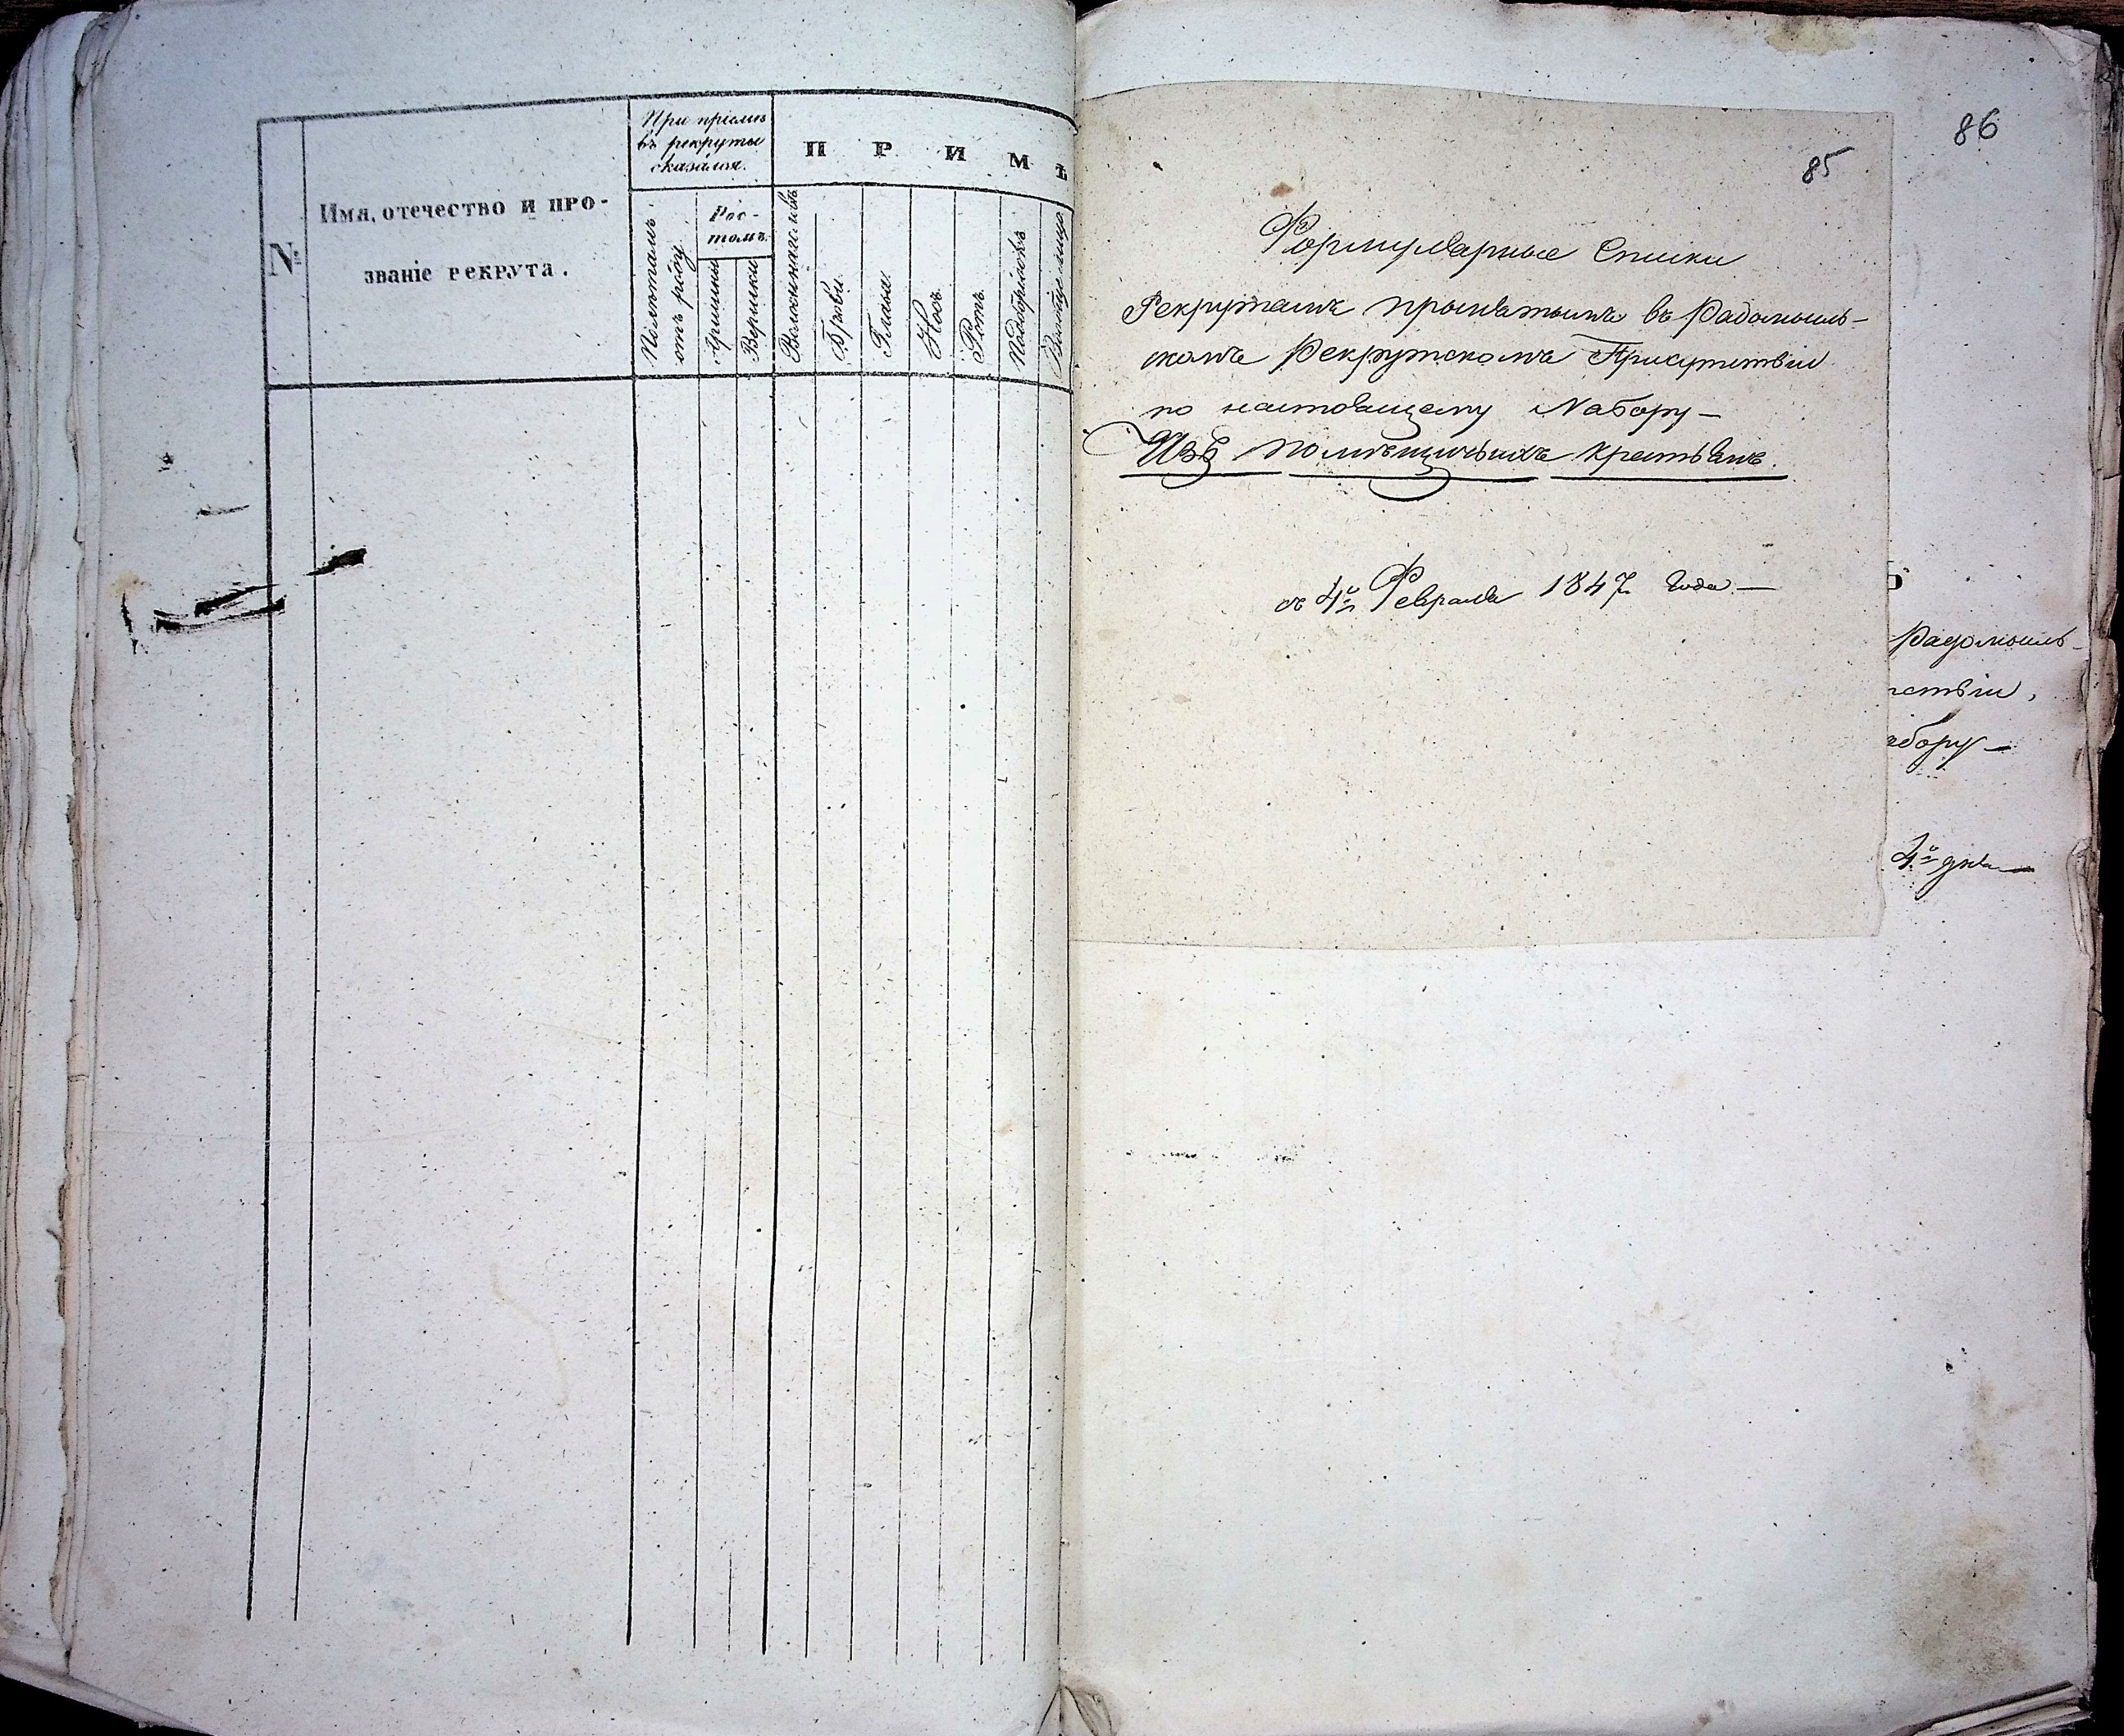 №
Имя, отчество и про-
званіе рекрута.
При пріемѣ
въ рекруты
оказался.
Полѣтамъ
отъ роду
Рос-
томъ.
Аршины
Вершки
П Р И М Ѣ
Брови.
Глаза.
Носъ.
Ротъ.
Подбородокъ
Вообще лицо.
86
85
Формулярные Списки
Рекрутамъ принятымъ въ Радомысль-
скомъ Рекрутскомъ Присутствіи
по настоящему Набору —
Изъ помѣщичьихъ крестьянъ.
съ 4го Февраля 1847 года —
Радомысль-
тствіи,
абору —
4го дня —